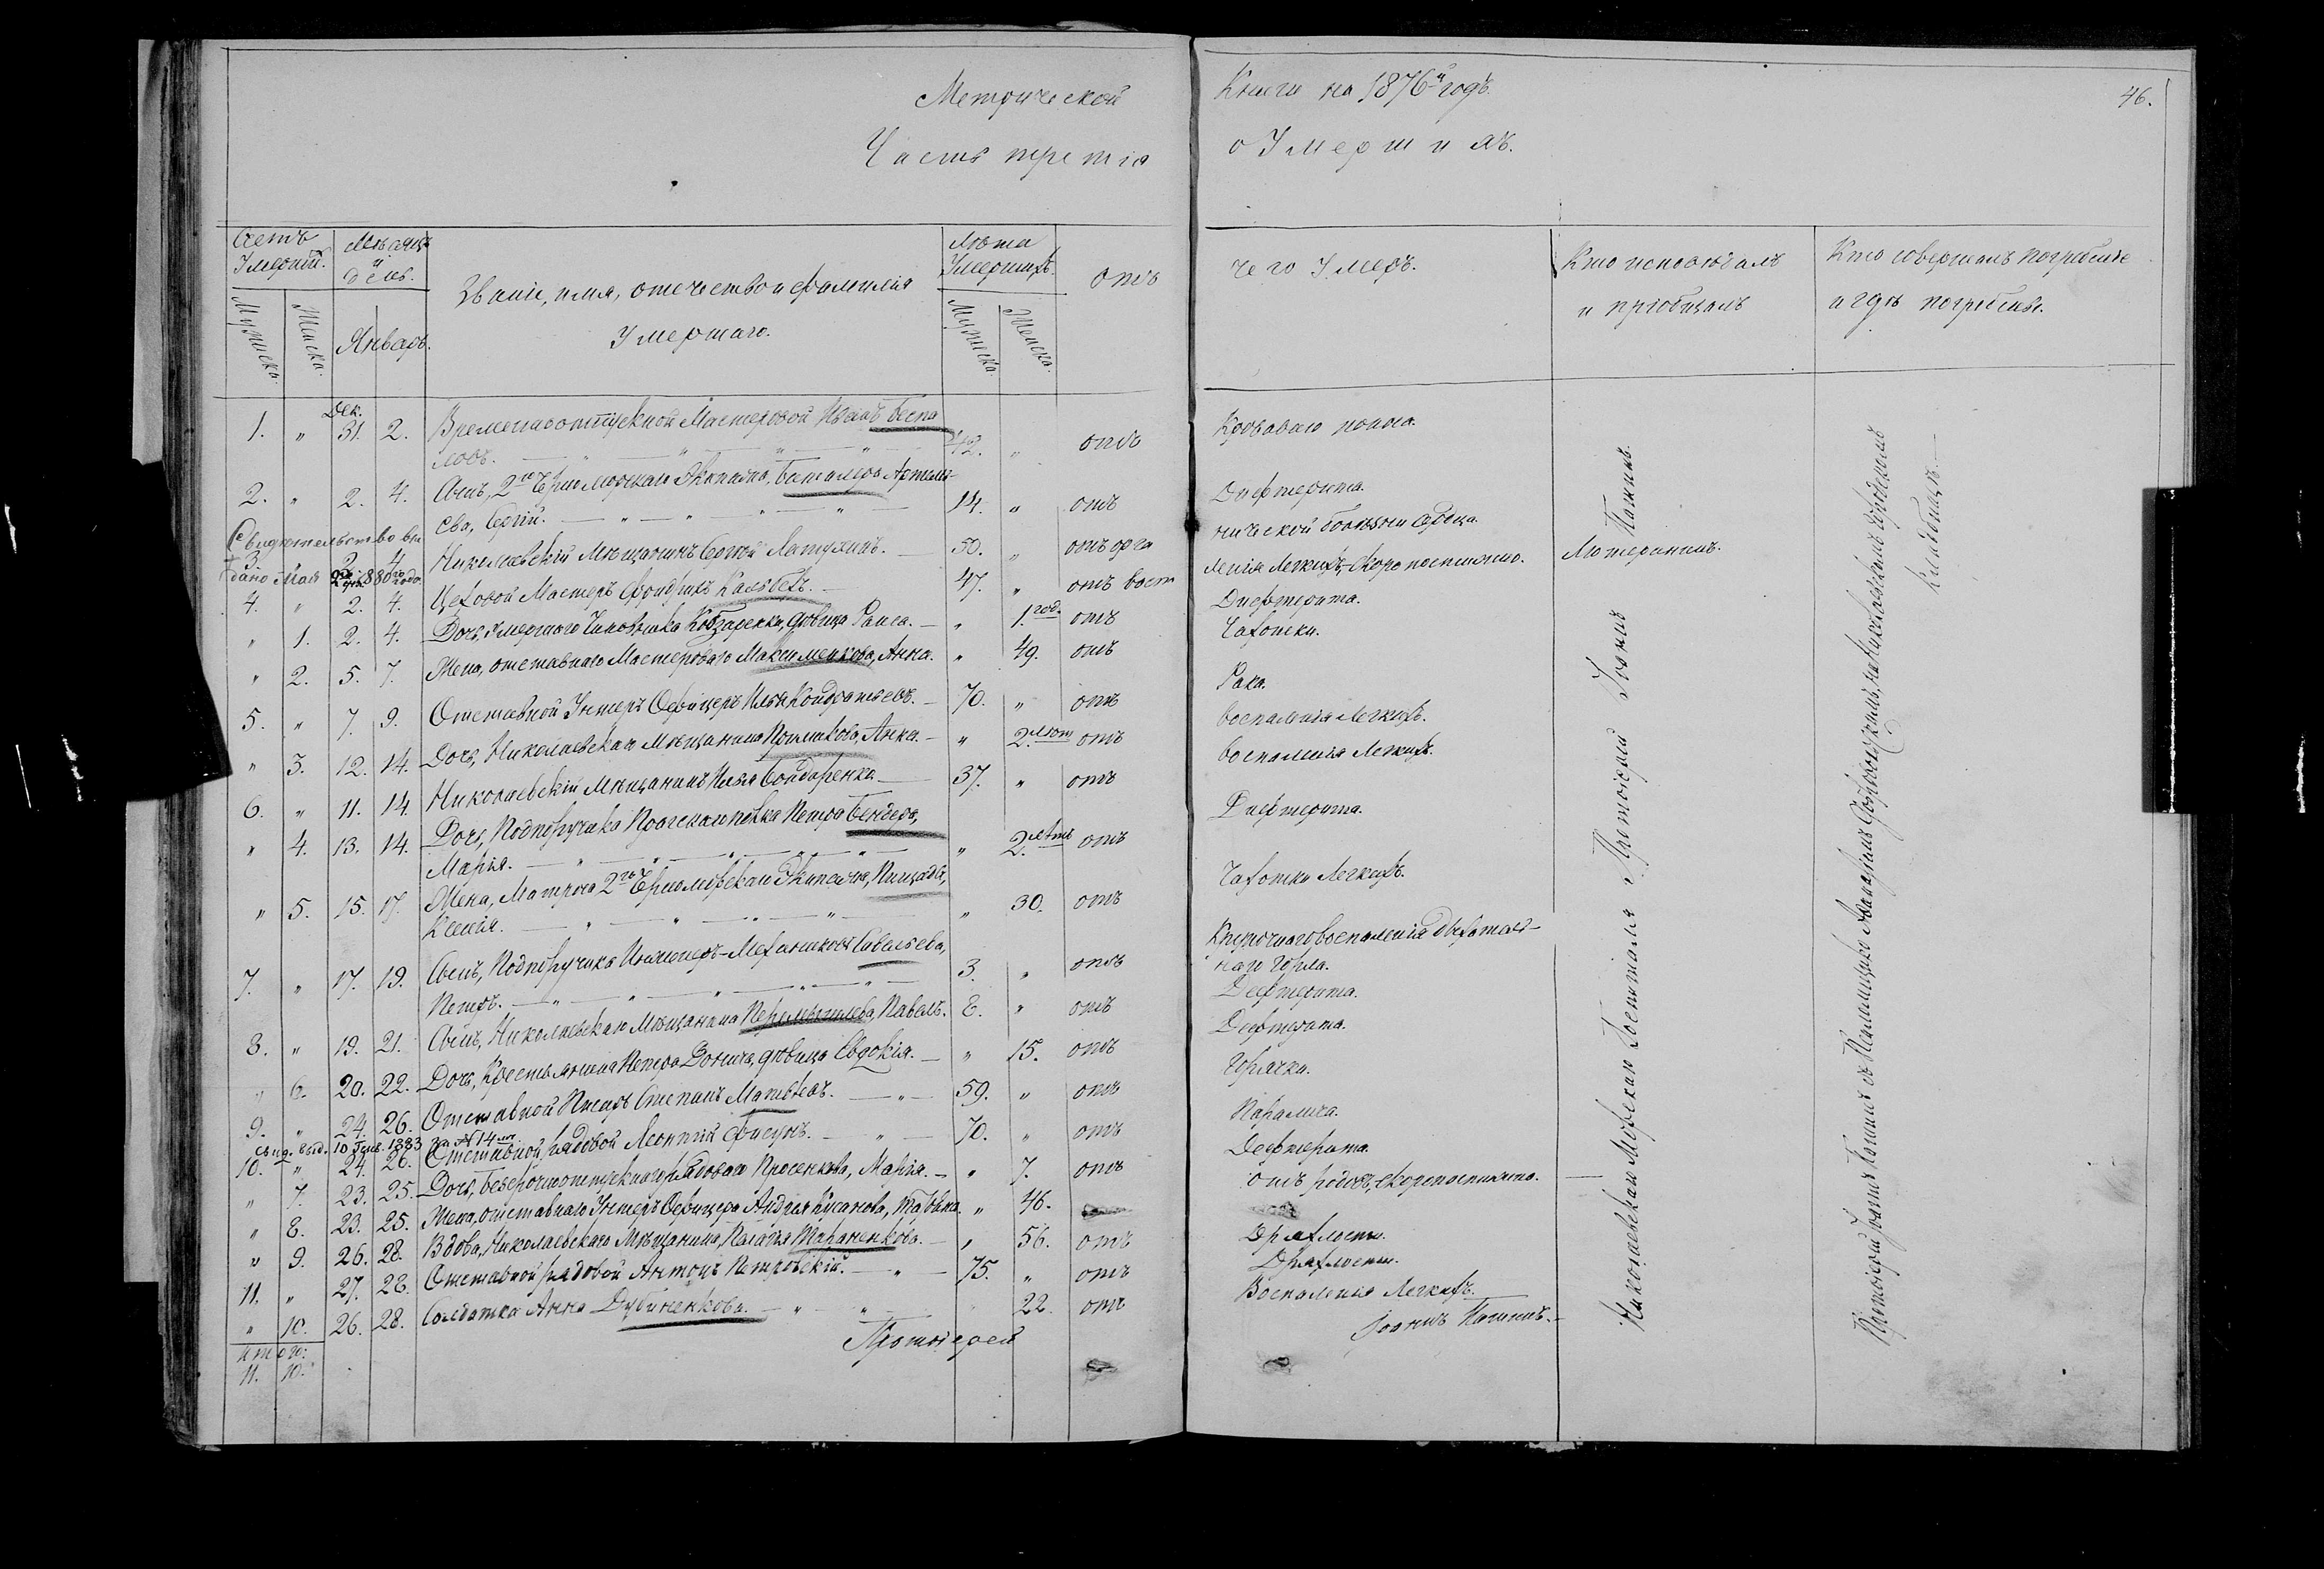 Метрической Книги на 1876й годъ. 46.
Часть третія о Умершихъ.
Счетъ Умершихъ. Мѣсяцъ и день. Званіе, имя, отечество и фамилія Умершаго. Лѣта Умершихъ. отъ чего Умеръ. Кто исповѣдалъ и пріобщалъ Кто совершалъ погребеніе и гдѣ погребены.
Мужеска. Женска. Январь. Мужеска. Женска.
1. " Дек. 31. 2. Временноотпускной Мастеровой Иванъ Беспа- 42. " отъ Кроваваго поноса.
ловъ.
2. " 2. 4. Сынъ, 2го Черноморскаго Экипажа, баталера Артемь- 14. " отъ Дифтерита.
ева, Сергій.
Свидѣтельство вы
3. " 2. 4. Николаевскій Мѣщанинъ Сергѣй Латухинъ. 50. " отъ органической болѣзни сердца.
дано Мая 1880го года.
4. " 2. 4. Цеховой Мастеръ Фридрихъ Кальбетъ. 47. " отъ воспаленія легкихъ, скоропостижно. Лютеранинъ.
" 1. 2. 4. Дочь, умершаго Чиновника Кобзаренка, дѣвица Раиса. " 1.год. отъ Дифтерита.
" 2. 5. 7. Жена, отставнаго Мастероваго Максименкова, Анна. " 49. отъ Чахотки.
5. " 7. 9. Отставной Унтеръ Офицеръ Илья Кондратьевъ. 70. " отъ Рака.
" 3. 12. 14. Дочь, Николаевскаго Мѣщанина, Анна. " 2. отъ воспаленія легкихъ.
6. " 11. 14. Николаевскій Мѣщанинъ Илья Бондаренко 37. " отъ воспаленія легкихъ.
" 4. 13. 14. Дочь, Подпоручика Пражскаго полка Петра Бендера, " 2.лѣтъ отъ Дифтерита.
Марія.
" 5. 15. 17. Жена, Матроса 2го Черноморскаго Экипажа, Пищады, " 30. отъ Чахотки легкихъ.
Ксенія.
7. " 17. 19. Сынъ, Подпоручика Инженеръ-Механиковъ Савельева, 3. " отъ Крупознаго воспаленія дыхатель-
Петръ. наго горла.
8. " 19. 21. Сынъ, Николаевскаго Мѣщанина Перемышлева, Павелъ. 8. " отъ Дифтерита.
" 6. 20. 22. Дочь, Крестьянина Петра Донича, дѣвица Евдокія. " 15. отъ Дифтерита.
9. " 24. 26. Отставной Писарь Степанъ Матвѣевъ. 59. " отъ Горячки.
Свид. выд. 10 Генв. 1883 за № 14
10. " 24. 26. Отставной рядовой Леонтій Фисунъ. 70. " отъ Паралича.
" 7. 23. 25. Дочь, безсрочноотпускнаго рядоваго Просенкова, Марія. " 7. отъ Дифтерита.
" 8. 23. 25. Жена, отставнаго Унтеръ Офицера Андрея Кусакова, " 46. отъ родовъ, скоропостижно. —
" 9. 26. 28. Вдова, Николаевскаго Мѣщанина, Пелагія Тараненкова. " 56. отъ Дряхлости.
11. " 27. 28. Отставной рядовой Антонъ Петровскій. 75. " отъ Дряхлости.
" 10. 26. 28. Солдатка Анна Дубиненкова. 22. отъ Воспаленія легкихъ.
Протоіерей Іоаннъ
Итого:
11. 10.
Николаевскаго Морскаго Госпиталя Протоіерей Іоаннъ
Протоіерей Іоаннъ съ на Николаевскомъ Городскомъ
Кладбищѣ.